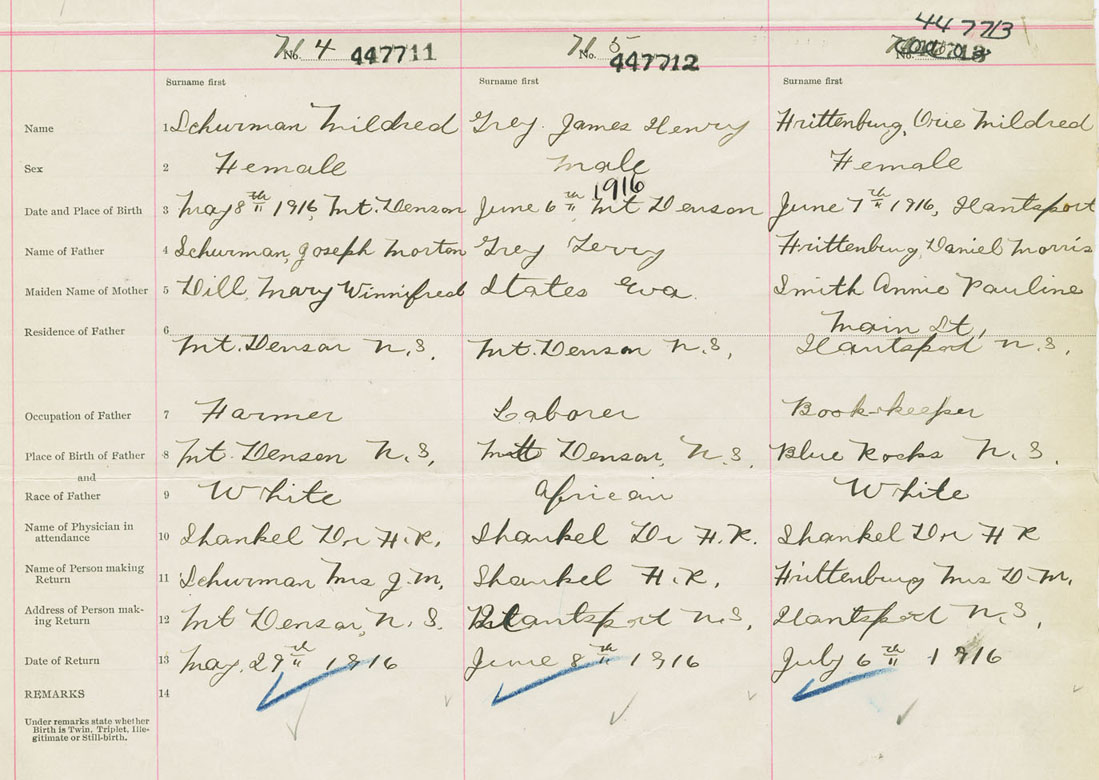 447713
No. 4 447711 No. 5 447712 No.
Surname first Surname first Surname first
Name 1 Schurman Mildred Grey James Henry Hrittenburg, Orie Mildred
Sex 2 Female Male Female
1916
Date and Place of Birth 3 May 8th 1916, Mt. Denson June 6th Mt Denson June 7th 1916, Hantsport
Name of Father 4 Schurman, Joseph Morton Grey Hrittenburg, Daniel Morris
Maiden Name of Mother 5 Dill, Mary Winnifred States Eva. Smith Annie Pauline
Residence of Father 6 Main St,
Mt. Denson N.S. Mt. Denson N.S. Hantsport N.S.
Occupation of Father 7 Farmer Laborer Book-keeper
Place of Birth of Father 8 Mt. Denson N.S. Mt Denson, N.S. Blue Rocks N.S.
and
Race of Father 9 White African White
Name of Physician in
attendance 10 Shankel Dr H.R. Shankel Dr H.R. Shankel Dr H R
Name of Person making
Return 11 Schurman Mrs J.M. Shankel H.R. Hrittenburg Mrs D.M.
Address of Person mak-
ing Return 12 Mt Denson, N.S. Hantsport N.S. Hantsport N.S.
Date of Return 13 May 29th 1916 June 8th 1916 July 6th 1916
REMARKS 14
Under remarks state whether
Birth is Twin, Triplet, Ille-
gitimate or Still-birth.